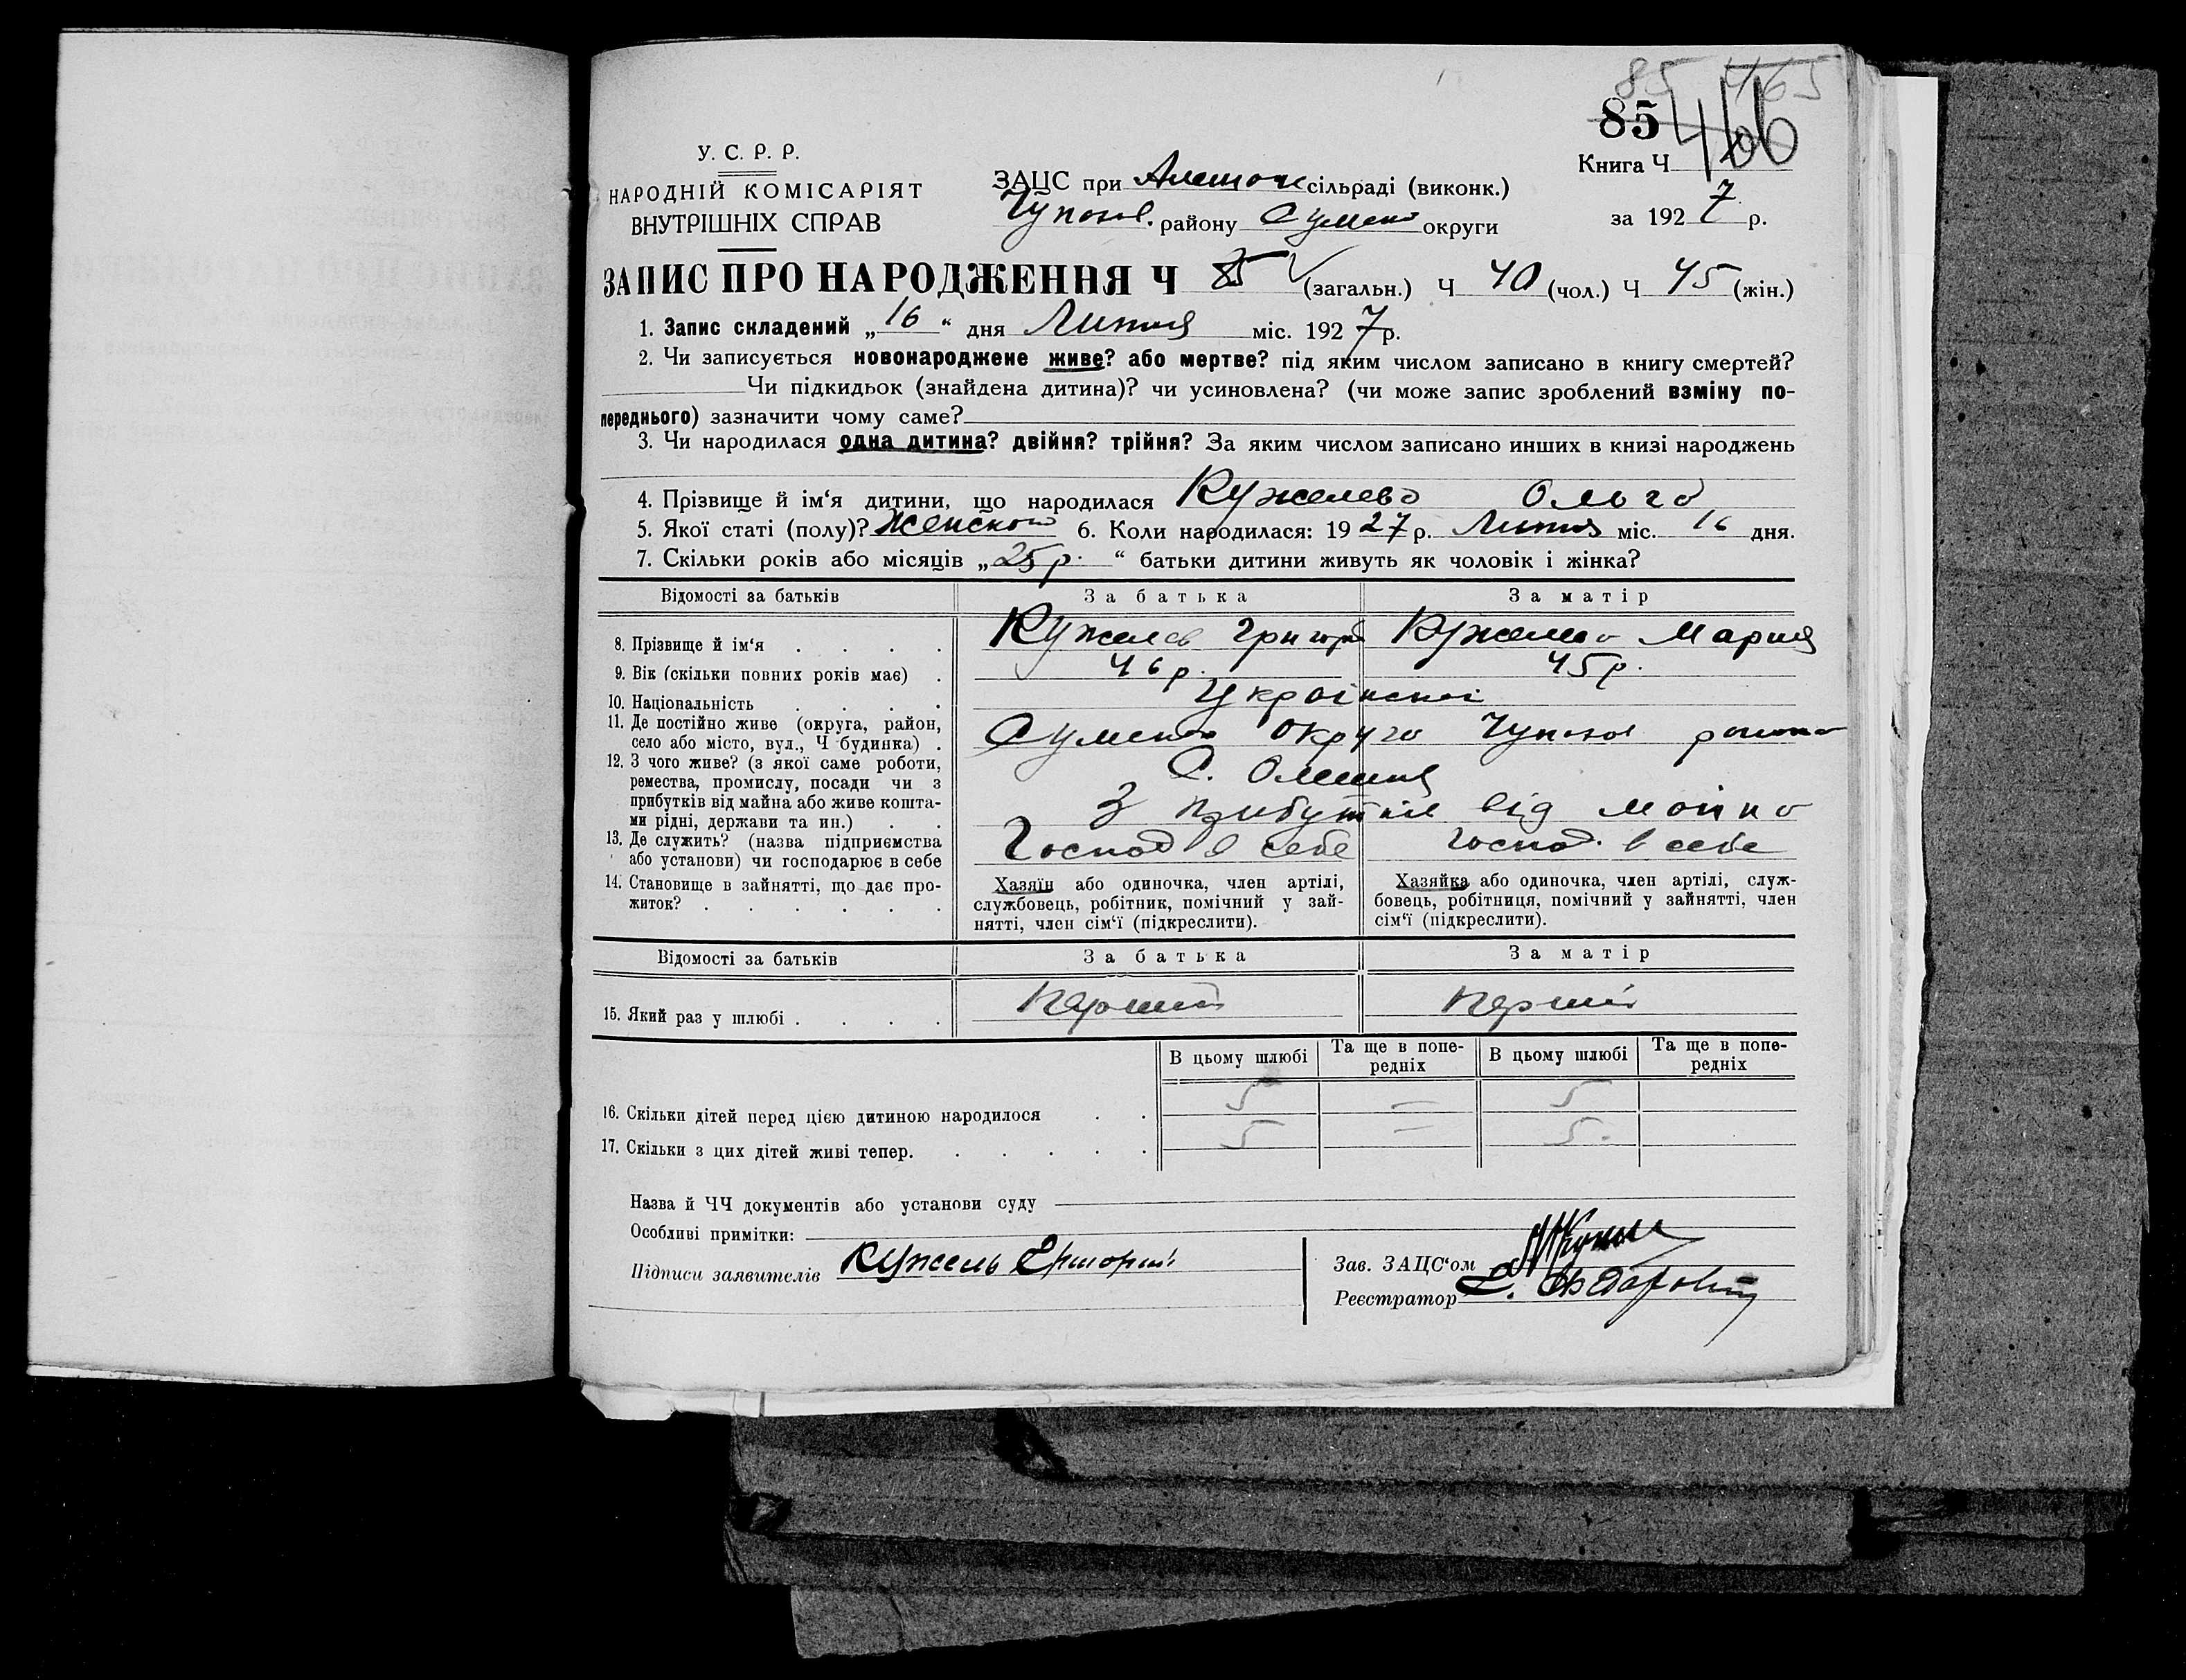 85 465
85 466
Книга Ч
У. С. Р. Р.
НАРОДНІЙ КОМІСАРІЯТ
ВНУТРІШНІХ СПРАВ
ЗАЦС при сільраді (виконк.)
Чупахов. району Сумсько округи
за 1927 р.
ЗАПИС ПРО НАРОДЖЕННЯ Ч 85 (загальн.) Ч 40 (чол.) Ч 45 (жін.)
1. Запис складений „16“ дня Липня міс. 1927 р.
2. Чи записується новонароджене живе? або мертве? під яким числом записано в книгу смертей?
Чи підкидьок (знайдена дитина)? чи усиновлена? (чи може запис зроблений взміну по-
переднього) зазначити чому саме?
3. Чи народилася одна дитина? двійня? трійня? За яким числом записано инших в книзі народжень
4. Прізвище й ім‘я дитини, що народилася Кужелева Ольга
5. Якої статі (полу)? Женской 6. Коли народилася: 1927 р. Липня міс. 16 дня.
7. Скільки років або місяців „25 р.“ батьки дитини живуть як чоловік і жінка?
Відомості за батьків За батька За матір
8. Прізвище й ім‘я . . . . Кужелев Григорій Кужелева Мария
9. Вік (скільки повних років має) . 46 р. 45 р.
10. Національність . . . . Українські
11. Де постійно живе (округа, район,
село або місто, вул., Ч будинка) . Сумська округа Чупахов района
С. Олешня
12. З чого живе? (з якої саме роботи,
ремества, промислу, посади чи з
прибутків від майна або живе кошта-
ми рідні, держави та ин.) . . З прибутків від майна
13. Де служить? (назва підприємства
або установи) чи господарює в себе Господ в себе Господ. в себе
14. Становище в зайнятті, що дає про-
житок? . . . . . .
Хазяїн або одиночка, член артілі,
службовець, робітник, помічний у зай-
нятті, член сім‘ї (підкреслити).
Хазяйка або одиночка, член артілі, служ-
бовець, робітниця, помічний у зайнятті, член
сім‘ї (підкреслити).
Відомості за батьків За батька За матір
15. Який раз у шлюбі . . . . Перший Перший
В цьому шлюбі Та ще в попе-
редніх В цьому шлюбі Та ще в попе-
редніх
16. Скільки дітей перед цією дитиною народилося . . 5 — 5
17. Скільки з цих дітей живі тепер. . . . . . 5 — 5
Назва й ЧЧ документів або установи суду
Особливі примітки:
Підписи заявителів Кужель Григорий
Зав. ЗАЦС‘ом
Реєстратор